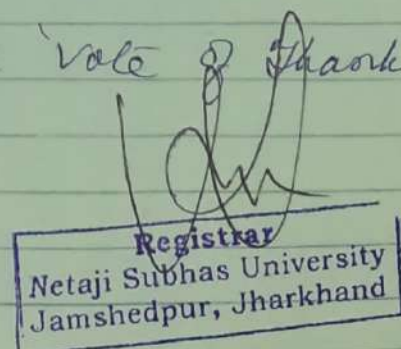 Vote of Thank
Registrar
Netaji Subhas University
Jamshedpur, Jharkhand